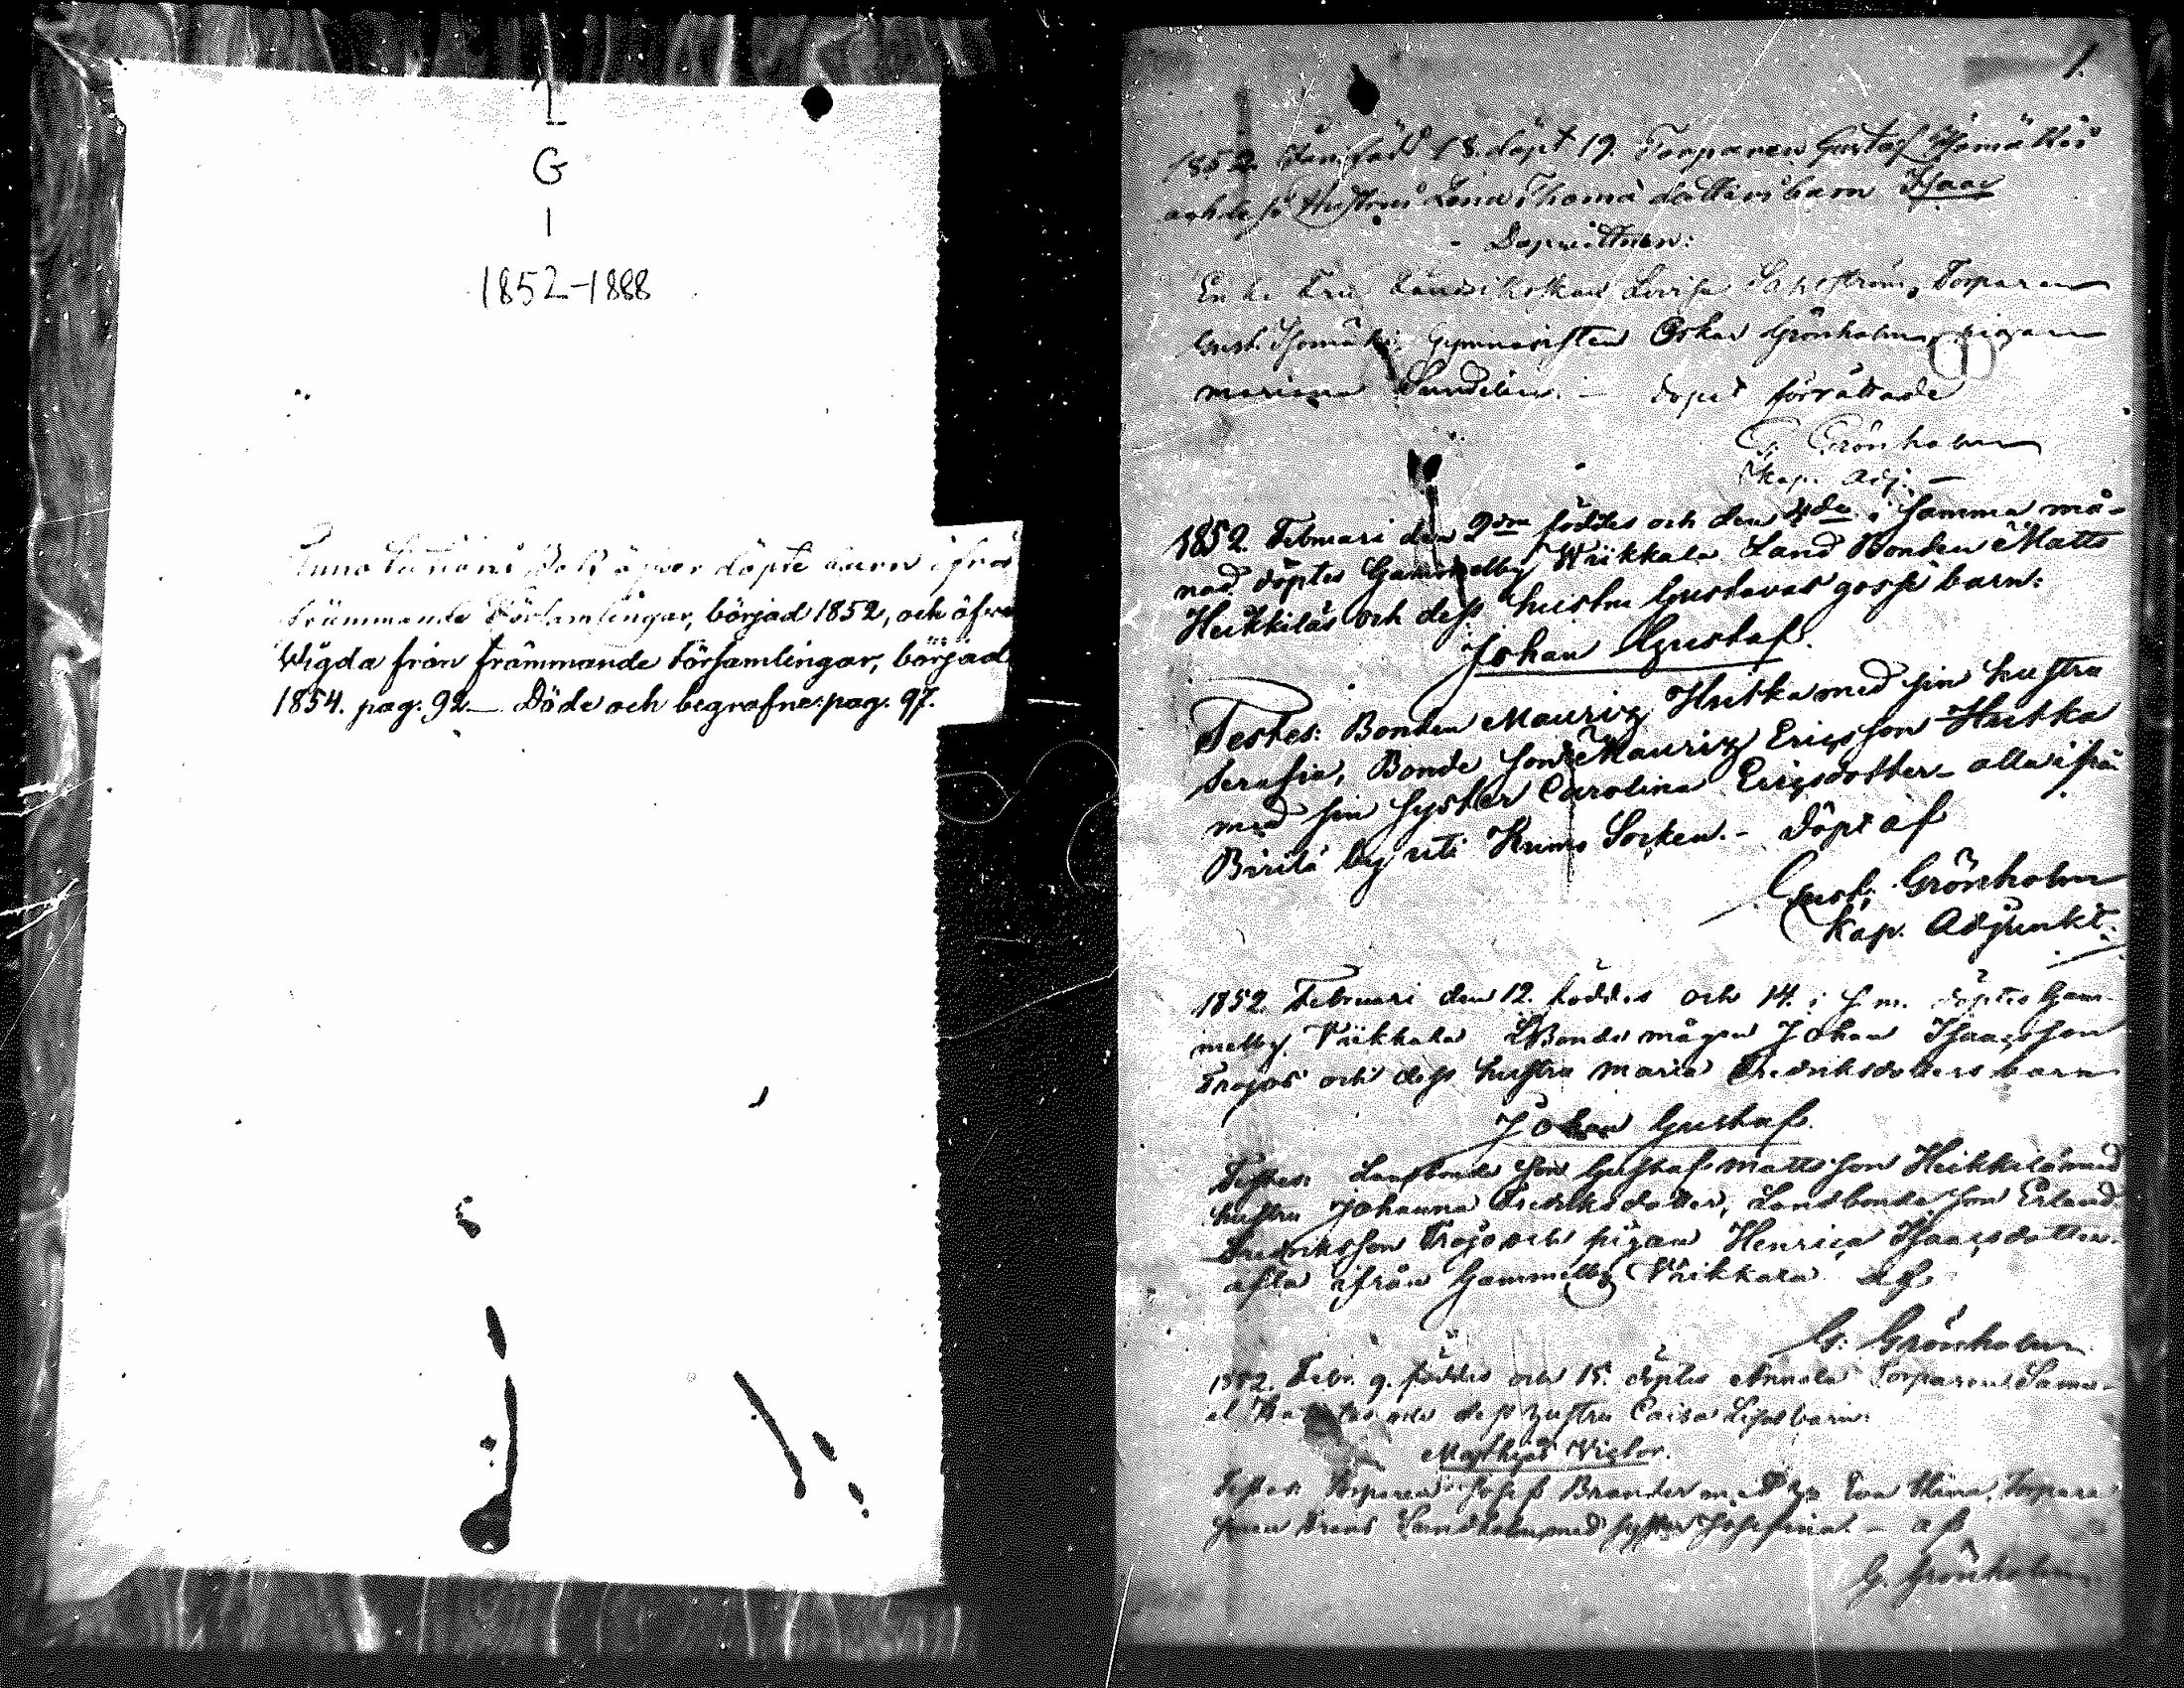 I
G
1
1852-1888
Annotations Bok öfver döpte barn ifrån
främmande Församlingar, börjad 1852, och öfver
Wigda från främmande Församlingar, börjad
1854. pag. 92 — Döde och begrafne: pag. 97.
1.
1852. Jan. född 18. döpt 19. Torparen Gustaf
och dess Hustrus Lena Thomä dotters barn Isaac
Dopvittnen:
Enke Fru Lovisa Torparen
Gust. Gymnasisten Oskar Grönholm, pigan
Maria Sundelin. — Dopet förrättade
G. Grönholm
Kap. Adj. —
1852. Februari den 2dra föddes och den 4de i samma må-
nad döptes Gammelby Wiikkala Land Bonden Matts
Heikkiläs och dess hustru Gustavas gosse barn:
Johan Gustaf.
Testes: Bonden Mauritz Hutka med sin hustru
Serafia, Bonde son Mauritz Ericsson Hutka
med sin syster Carolina Ericsdotter — alla ifrån
Birilä by uti Kumo Socken. — Döpt af
Gust. Grönholm
Kap. Adjunkt.
1852. Februari den 12. föddes och 14. i s. m. döptes Gam-
melby Viikkala LBonde mågen Johan Isaacsson
Trojos och dess hustru Maria Fredriksdotters barn
Johan Gustaf.
Testes: Landbonde son Gustaf Mattsson Heikkilä med
hustru Johanna Fredriksdotter, Landbonde son Erland
Fredriksson Trojo och pigan Henrica Isaacsdotter.
alla ifrån Gammelby Viikkala af
G. Grönholm
1852. Febr. 9. föddes och 15. döptes Annala Torparen Samu-
el och dess hustru Caisa Lisas barn:
Mathias Victor.
Testes: Torparen Josef Brander med Eva Torpare
sonen med syster Josefina. — af
G. Grönholm